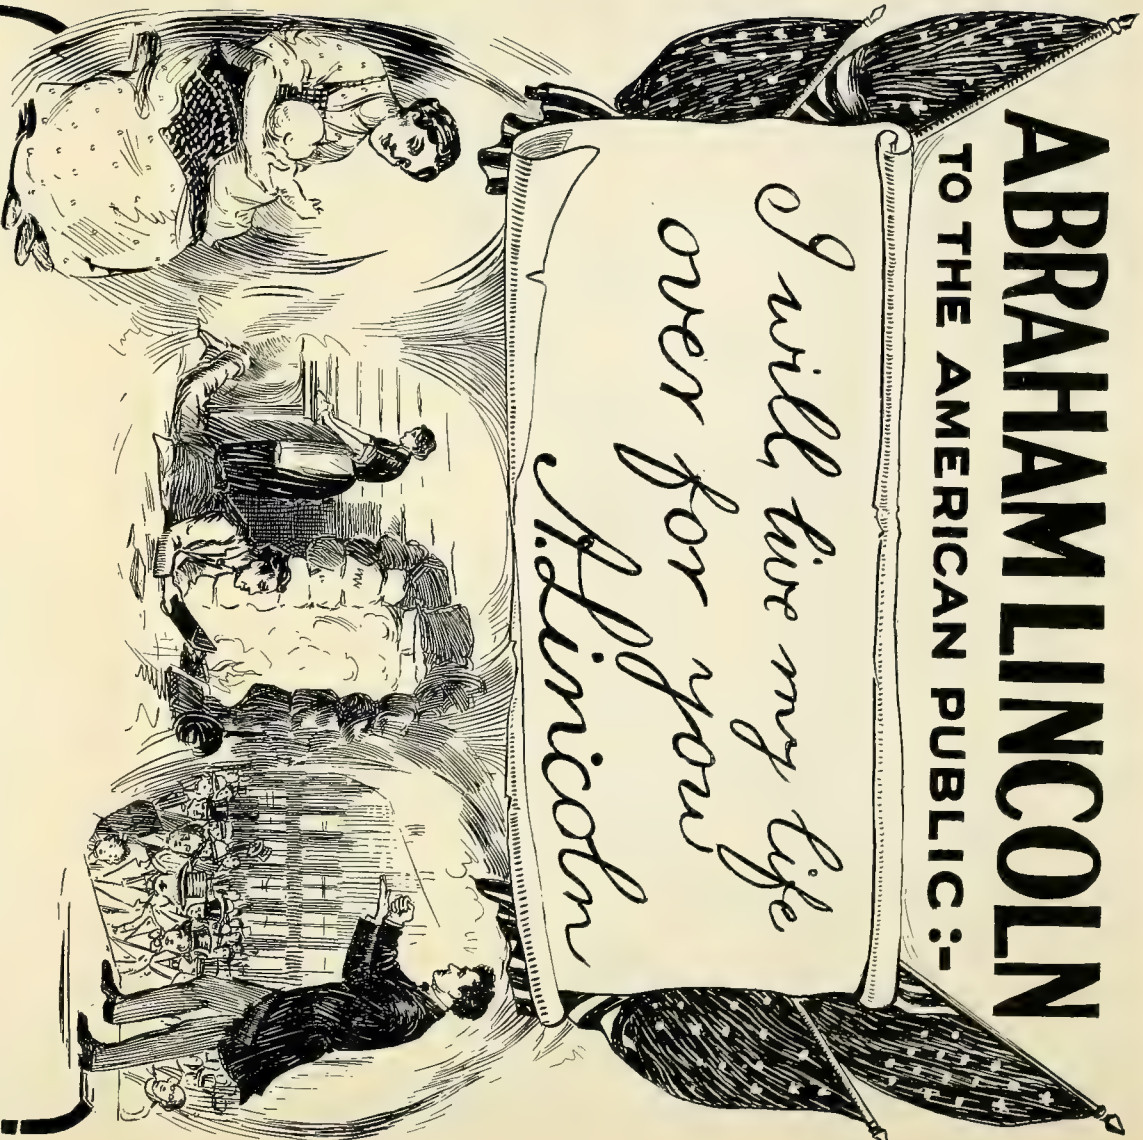 ABRAHAM LINCOLN
TO THE AMERICAN PUBLIC:-
I will live my life
over for you
A. Lincoln